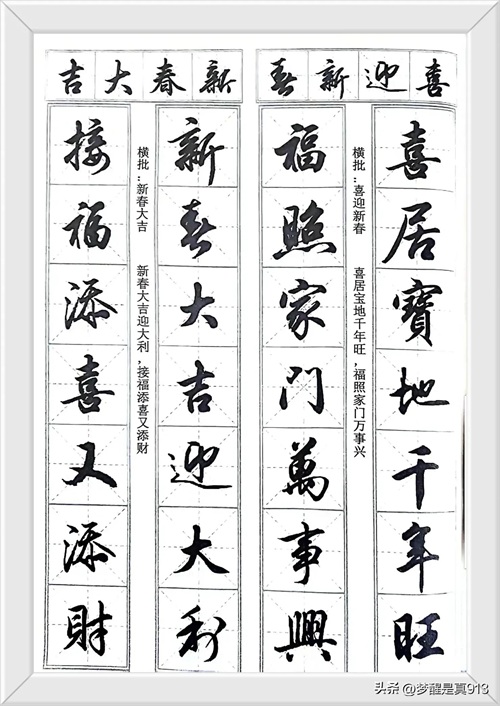 喜迎新春
喜居寶地千年旺
横批：喜迎新春　喜居宝地千年旺，福照家门万事兴
福照家门萬事興
新春大吉
新春大吉迎大利
横批：新春大吉　新春大吉迎大利，接福添喜又添财
接福添喜又添財
头条 @梦醒是真913